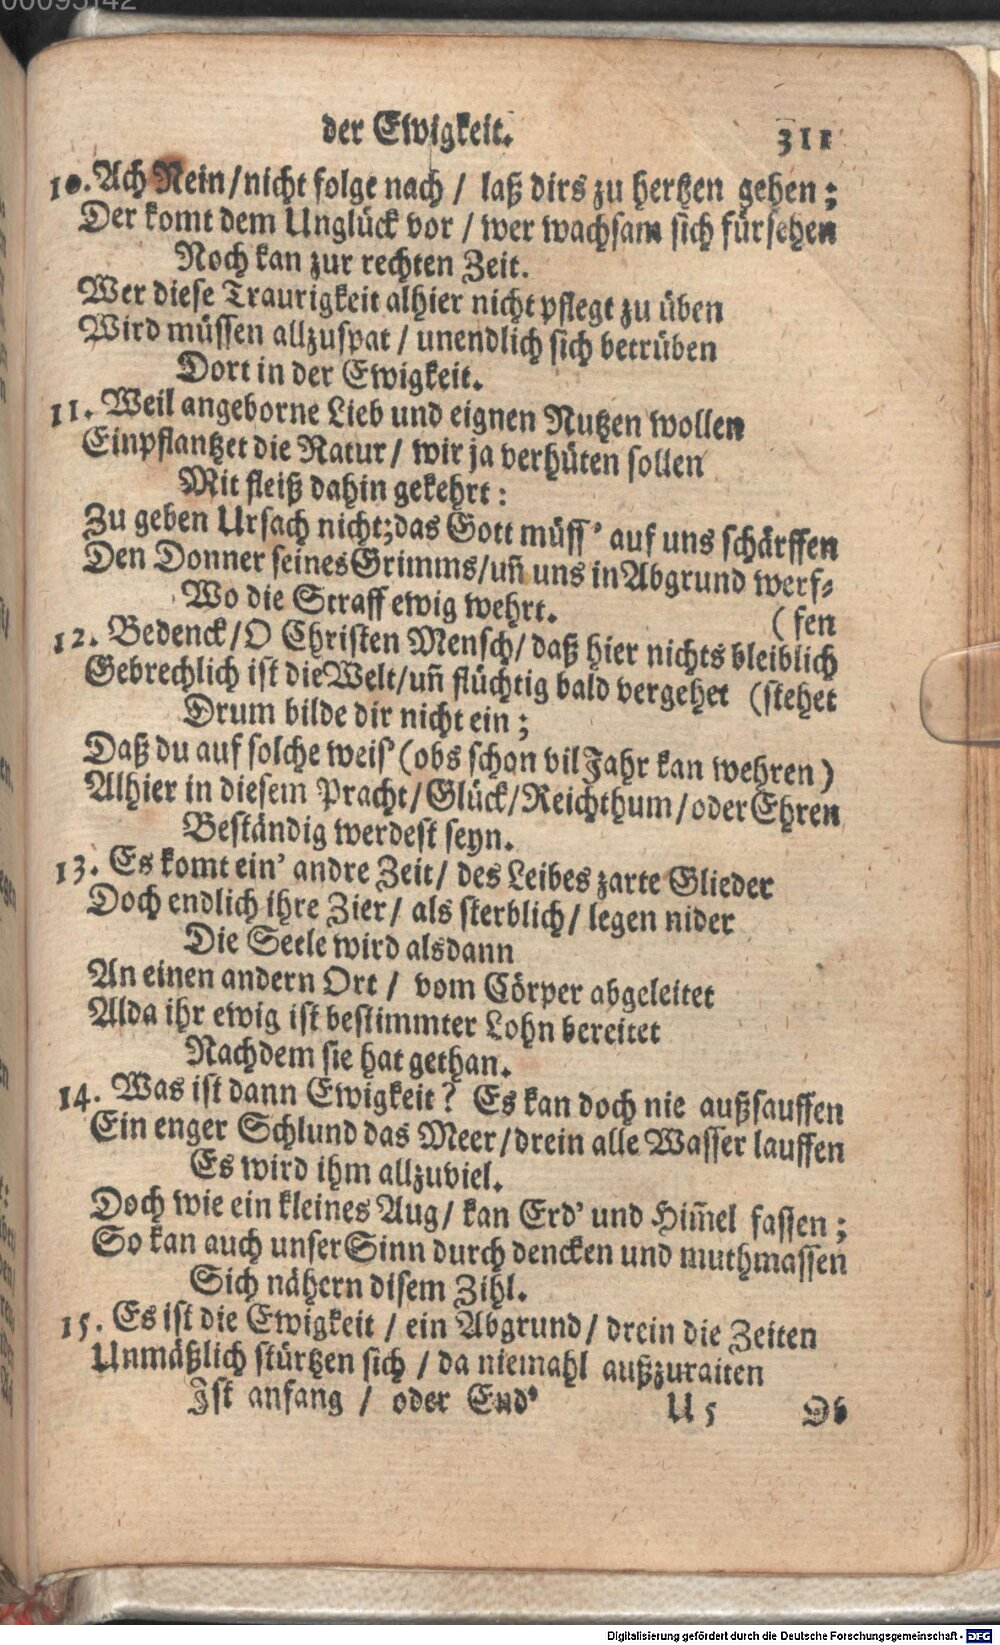 der Ewigkeit. 311
10. Ach Nein/nicht folge nach / laß dirs zu hertzen gehen;
Der komt dem Unglück vor / wer wachsam sich fürsehen
Noch kan zur rechten Zeit.
Wer diese Traurigkeit alhier nicht pflegt zu üben
Wird müssen allzuspat / unendlich sich betrüben
Dort in der Ewigkeit.
11. Weil angeborne Lieb und eignen Nutzen wollen
Einpflantzet die Natur / wir ja verhüten sollen
Mit fleiß dahin gekehrt:
Zu geben Ursach nicht; das Gott müss' auf uns schärffen
Den Donner seines Grimms/uñ uns in Abgrund werf-
Wo die Straff ewig wehrt. (fen
12. Bedenck/O Christen Mensch/ daß hier nichts bleiblich
Gebrechlich ist die Welt/uñ flüchtig bald vergehet (stehet
Drum bilde dir nicht ein;
Daß du auf solche weis' (obs schon vil Jahr kan wehren)
Alhier in diesem Pracht/Glück/Reichthum/oder Ehren
Beständig werdest seyn.
13. Es komt ein' andre Zeit/ des Leibes zarte Glieder
Doch endlich ihre Zier/ als sterblich/ legen nider
Die Seele wird alsdann
An einen andern Ort / vom Cörper abgeleitet
Alda ihr ewig ist bestimmter Lohn bereitet
Nachdem sie hat gethan.
14. Was ist dann Ewigkeit? Es kan doch nie außsauffen
Ein enger Schlund das Meer/drein alle Wasser lauffen
Es wird ihm allzuviel.
Doch wie ein kleines Aug/ kan Erd' und Him̃el fassen;
So kan auch unser Sinn durch dencken und muthmassen
Sich nähern disem Zihl.
15. Es ist die Ewigkeit / ein Abgrund/ drein die Zeiten
Unmäßlich stürtzen sich / da niemahl außzuraiten
Ist anfang / oder End'
U 5 Ob
Digitalisierung gefördert durch die Deutsche Forschungsgemeinschaft - DFG